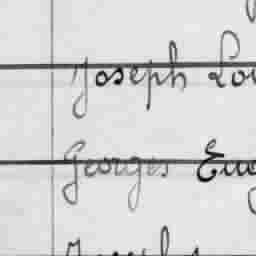 Joseph Lou
Georges Eug